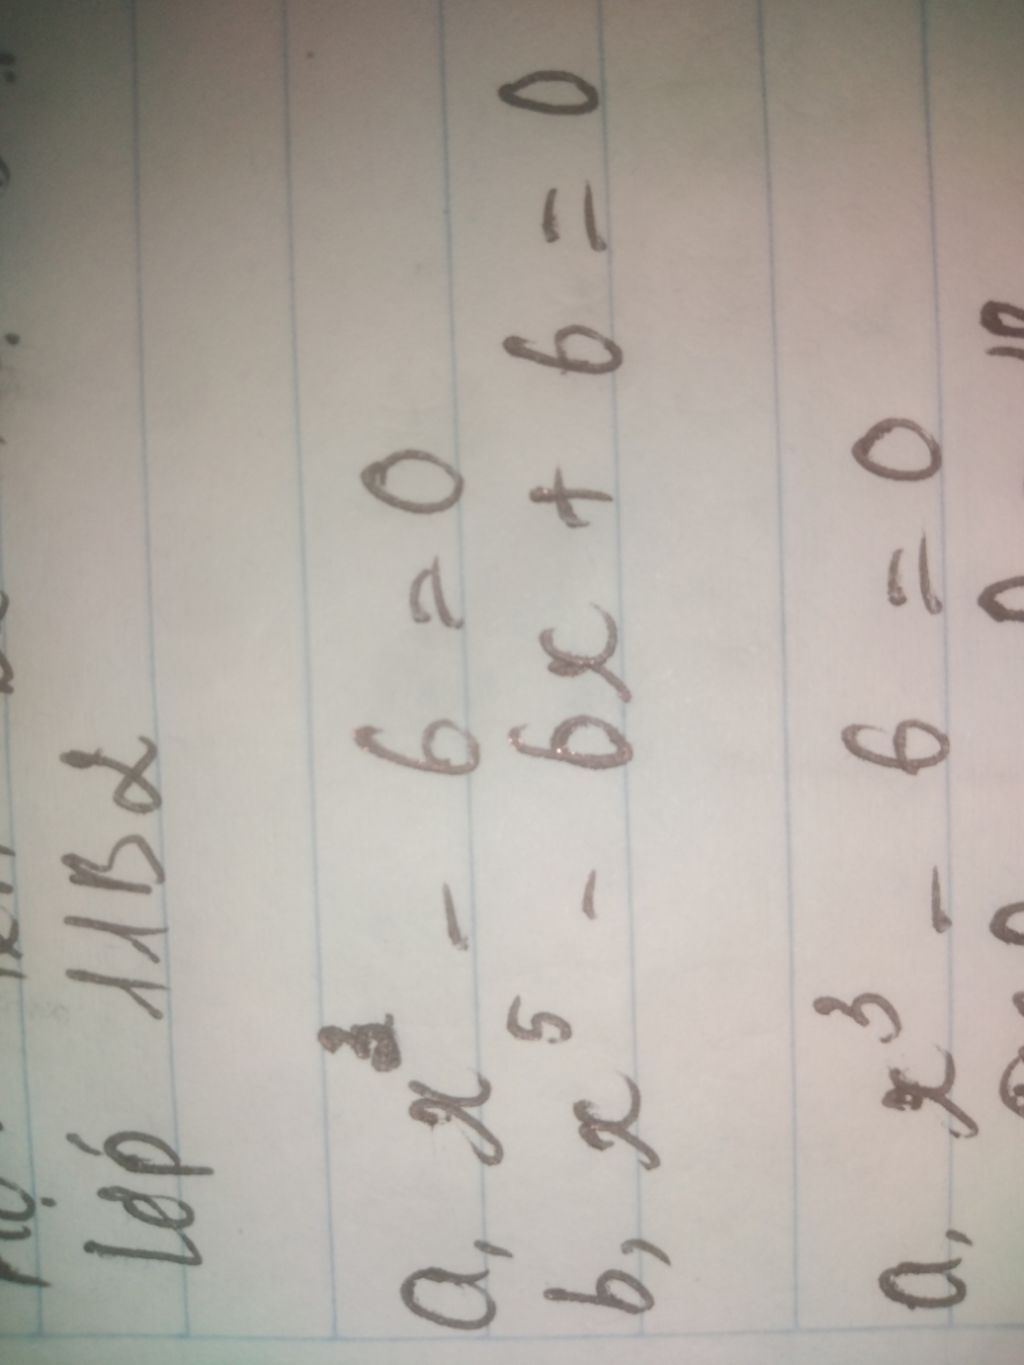 Lớp 11B2
a, x³ - 6 = 0
b, x⁵ - 6x + 6 = 0
a, x³ - 6 = 0